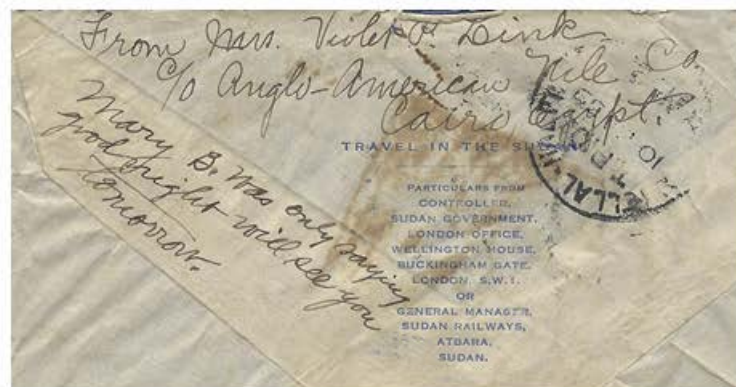 From Mrs. Violet P. Zink
c/o Anglo-American Nile Co.
Cairo Egypt.
Mary B. was only saying
good night will see you
tomorrow.
TRAVEL IN THE SUDAN
PARTICULARS FROM
CONTROLLER,
SUDAN GOVERNMENT,
LONDON OFFICE,
WELLINGTON HOUSE,
BUCKINGHAM GATE,
LONDON. S.W.1.
OR
GENERAL MANAGER,
SUDAN RAILWAYS,
ATBARA,
SUDAN.
ELLAL